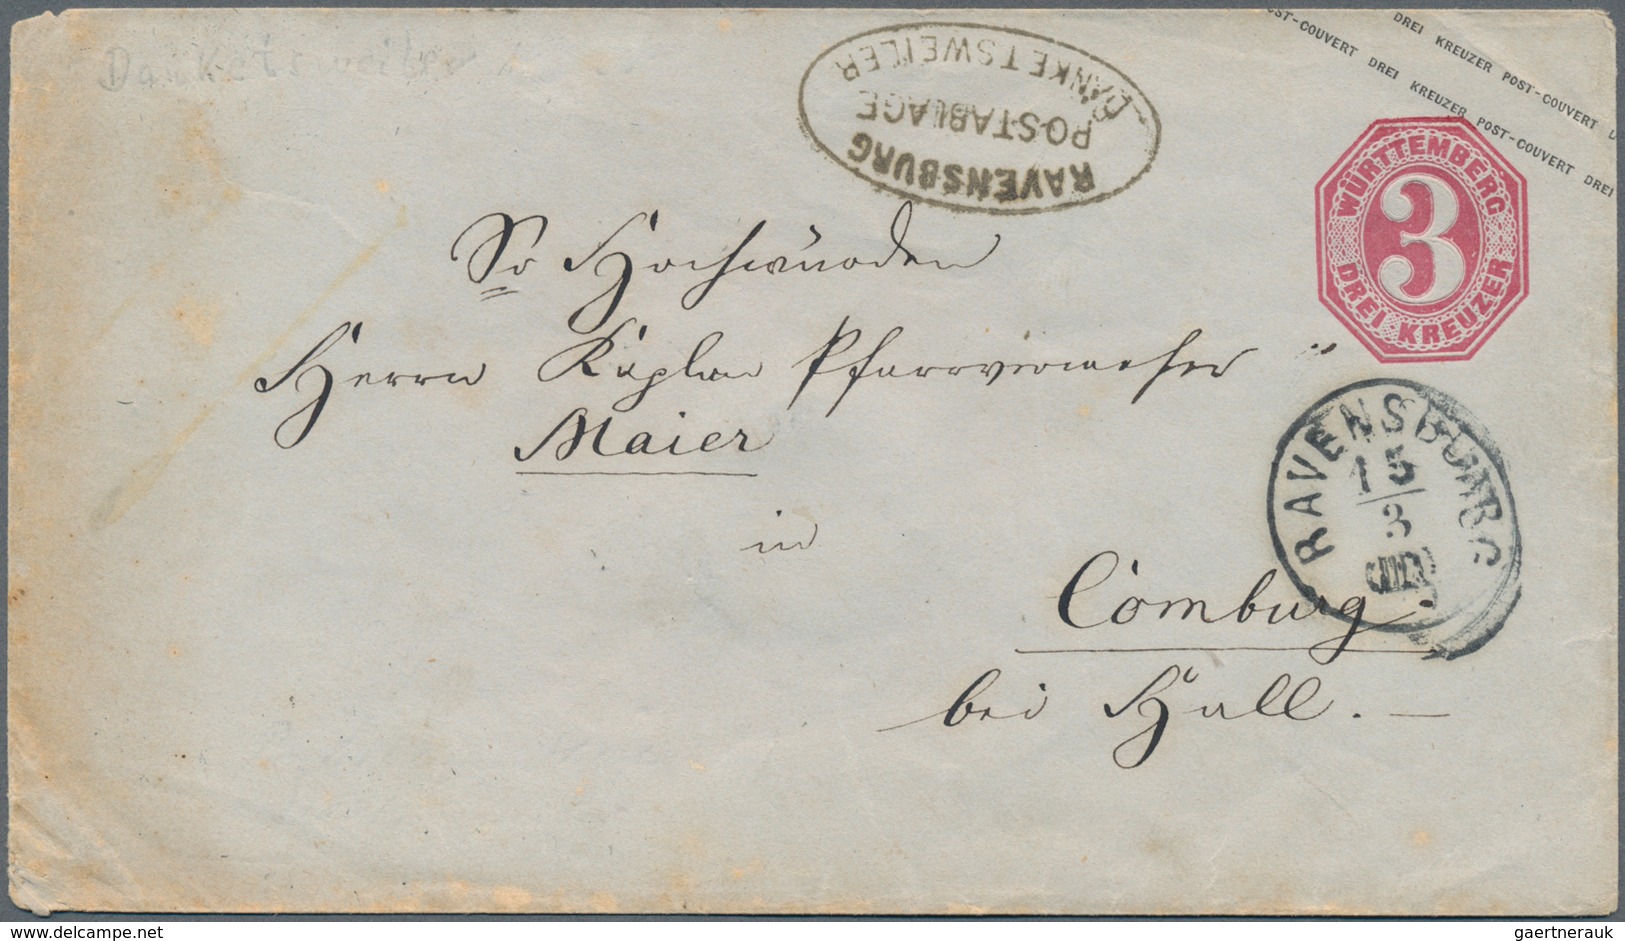 Danketsweiler
RAVENSBURG
POSTABLAGE
DANKETSWEILER
DREI KREUZER POST-COUVERT D
ST-COUVERT DREI KREUZER POST-COUVERT DREI
WÜRTTEMBERG
3
DREI KREUZER
Sr Hochwürden
Herrn Kaplan Pfarrverweser
Maier
in
Comburg
bei Hall.
RAVENSBURG
15
3
III
delcampe.net
gaertnerauk